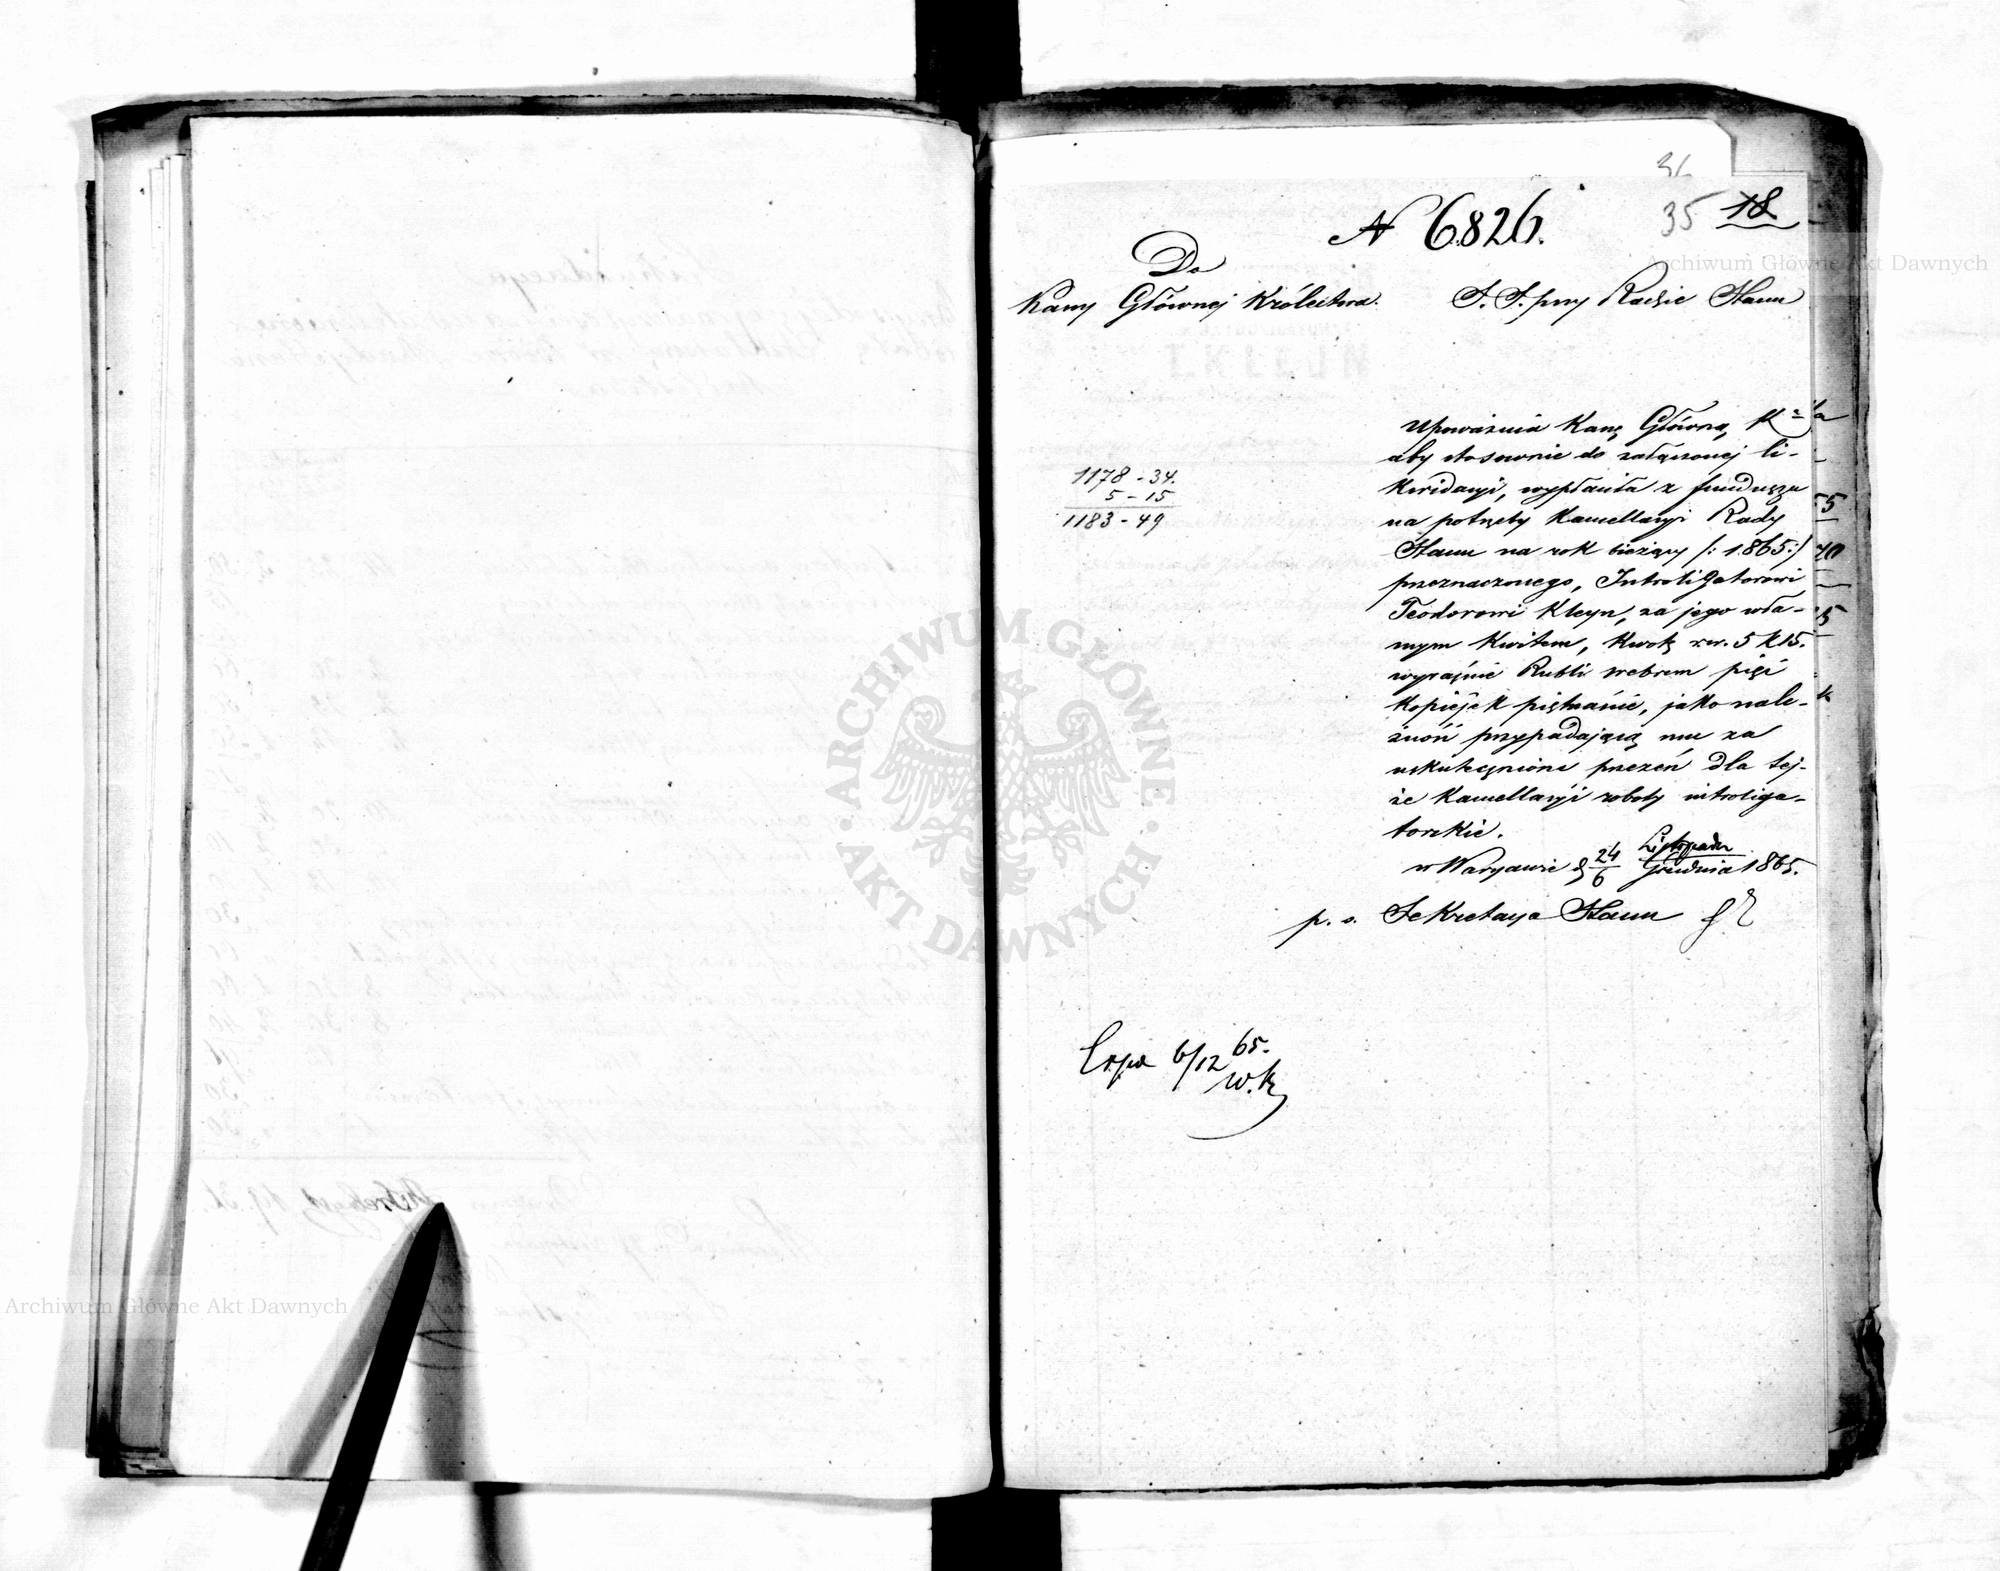 35 18
N 6826.
Do
Kasy Głównej Królestwa.
S. S. przy Radzie Stanu
Upoważnia Kasę Główną
aby stosownie do załączonej li-
kwidacyi, wypłaciła z funduszu
na potrzeby Kancellaryi Rady
Stanu na rok bieżący /: 1865 :/
przeznaczonego, Introligatorowi
Teodorowi Kleyn, za jego wła-
snym kwitem, kwotę rsr. 5 k 15.
wyraźnie Rubli srebrem pięć
kopiejek piętnaście, jako nale-
żność przypadającą mu za
uskutecznione przezeń dla tej-
że Kancellaryi roboty introliga-
torskie.
w Warszawie d 24/6 Listopada/Grudnia 1865.
p. o. Sekretarza Stanu
1178 - 34.
5 - 15
1183 - 49
Exped 6/12 65.
W. K
Archiwum Główne Akt Dawnych
Archiwum Główne Akt Dawnych
ARCHIWUM GŁÓWNE
AKT DAWNYCH